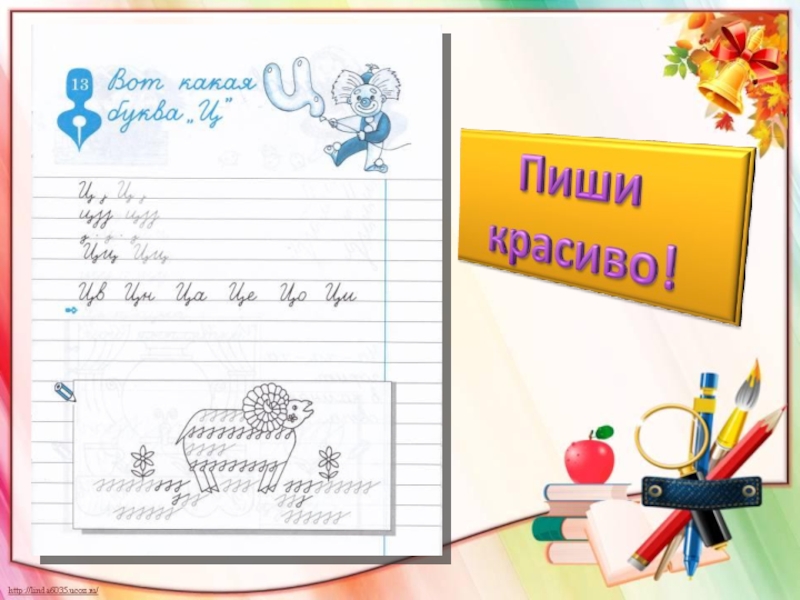 13
Вот какая
буква „Ц”
Ц
Цц Цц
Цв Цн Ца Це Цо Ци
Пиши
красиво!
http://linda6035.ucoz.ru/